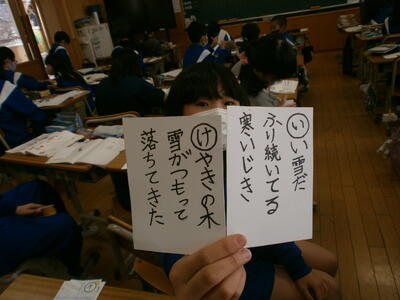 いい雪だ
ふり続いてる
寒いじき
けやきの木
雪がつもって
落ちてきた
い